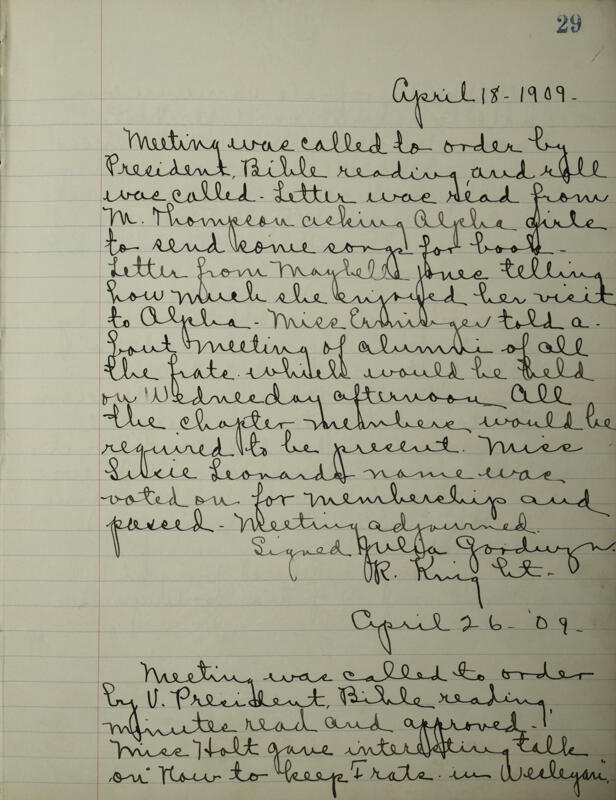 29
April 18 - 1909 -
Meeting was called to order by
President, Bible reading, and roll
was called - Letter was read from
M. Thompson asking Alpha girls
to send some songs for book -
Letter from Maybelle Jones telling
how much she enjoyed her visit
to Alpha - Miss Erminger told a-
bout meeting of alumni of all
the frats which would be held
on Wednesday afternoon All
the chapter members would be
required to be present. Miss
Susie Leonards name was
voted on for membership and
passed - Meeting adjourned.
Signed Julia Goodwyn
R. Knight -
April 26 - '09 -
Meeting was called to order
by V. President, Bible reading,
minutes read and approved -
Miss Holt gave interesting talk
on "How to keep Frats in Wesleyan".